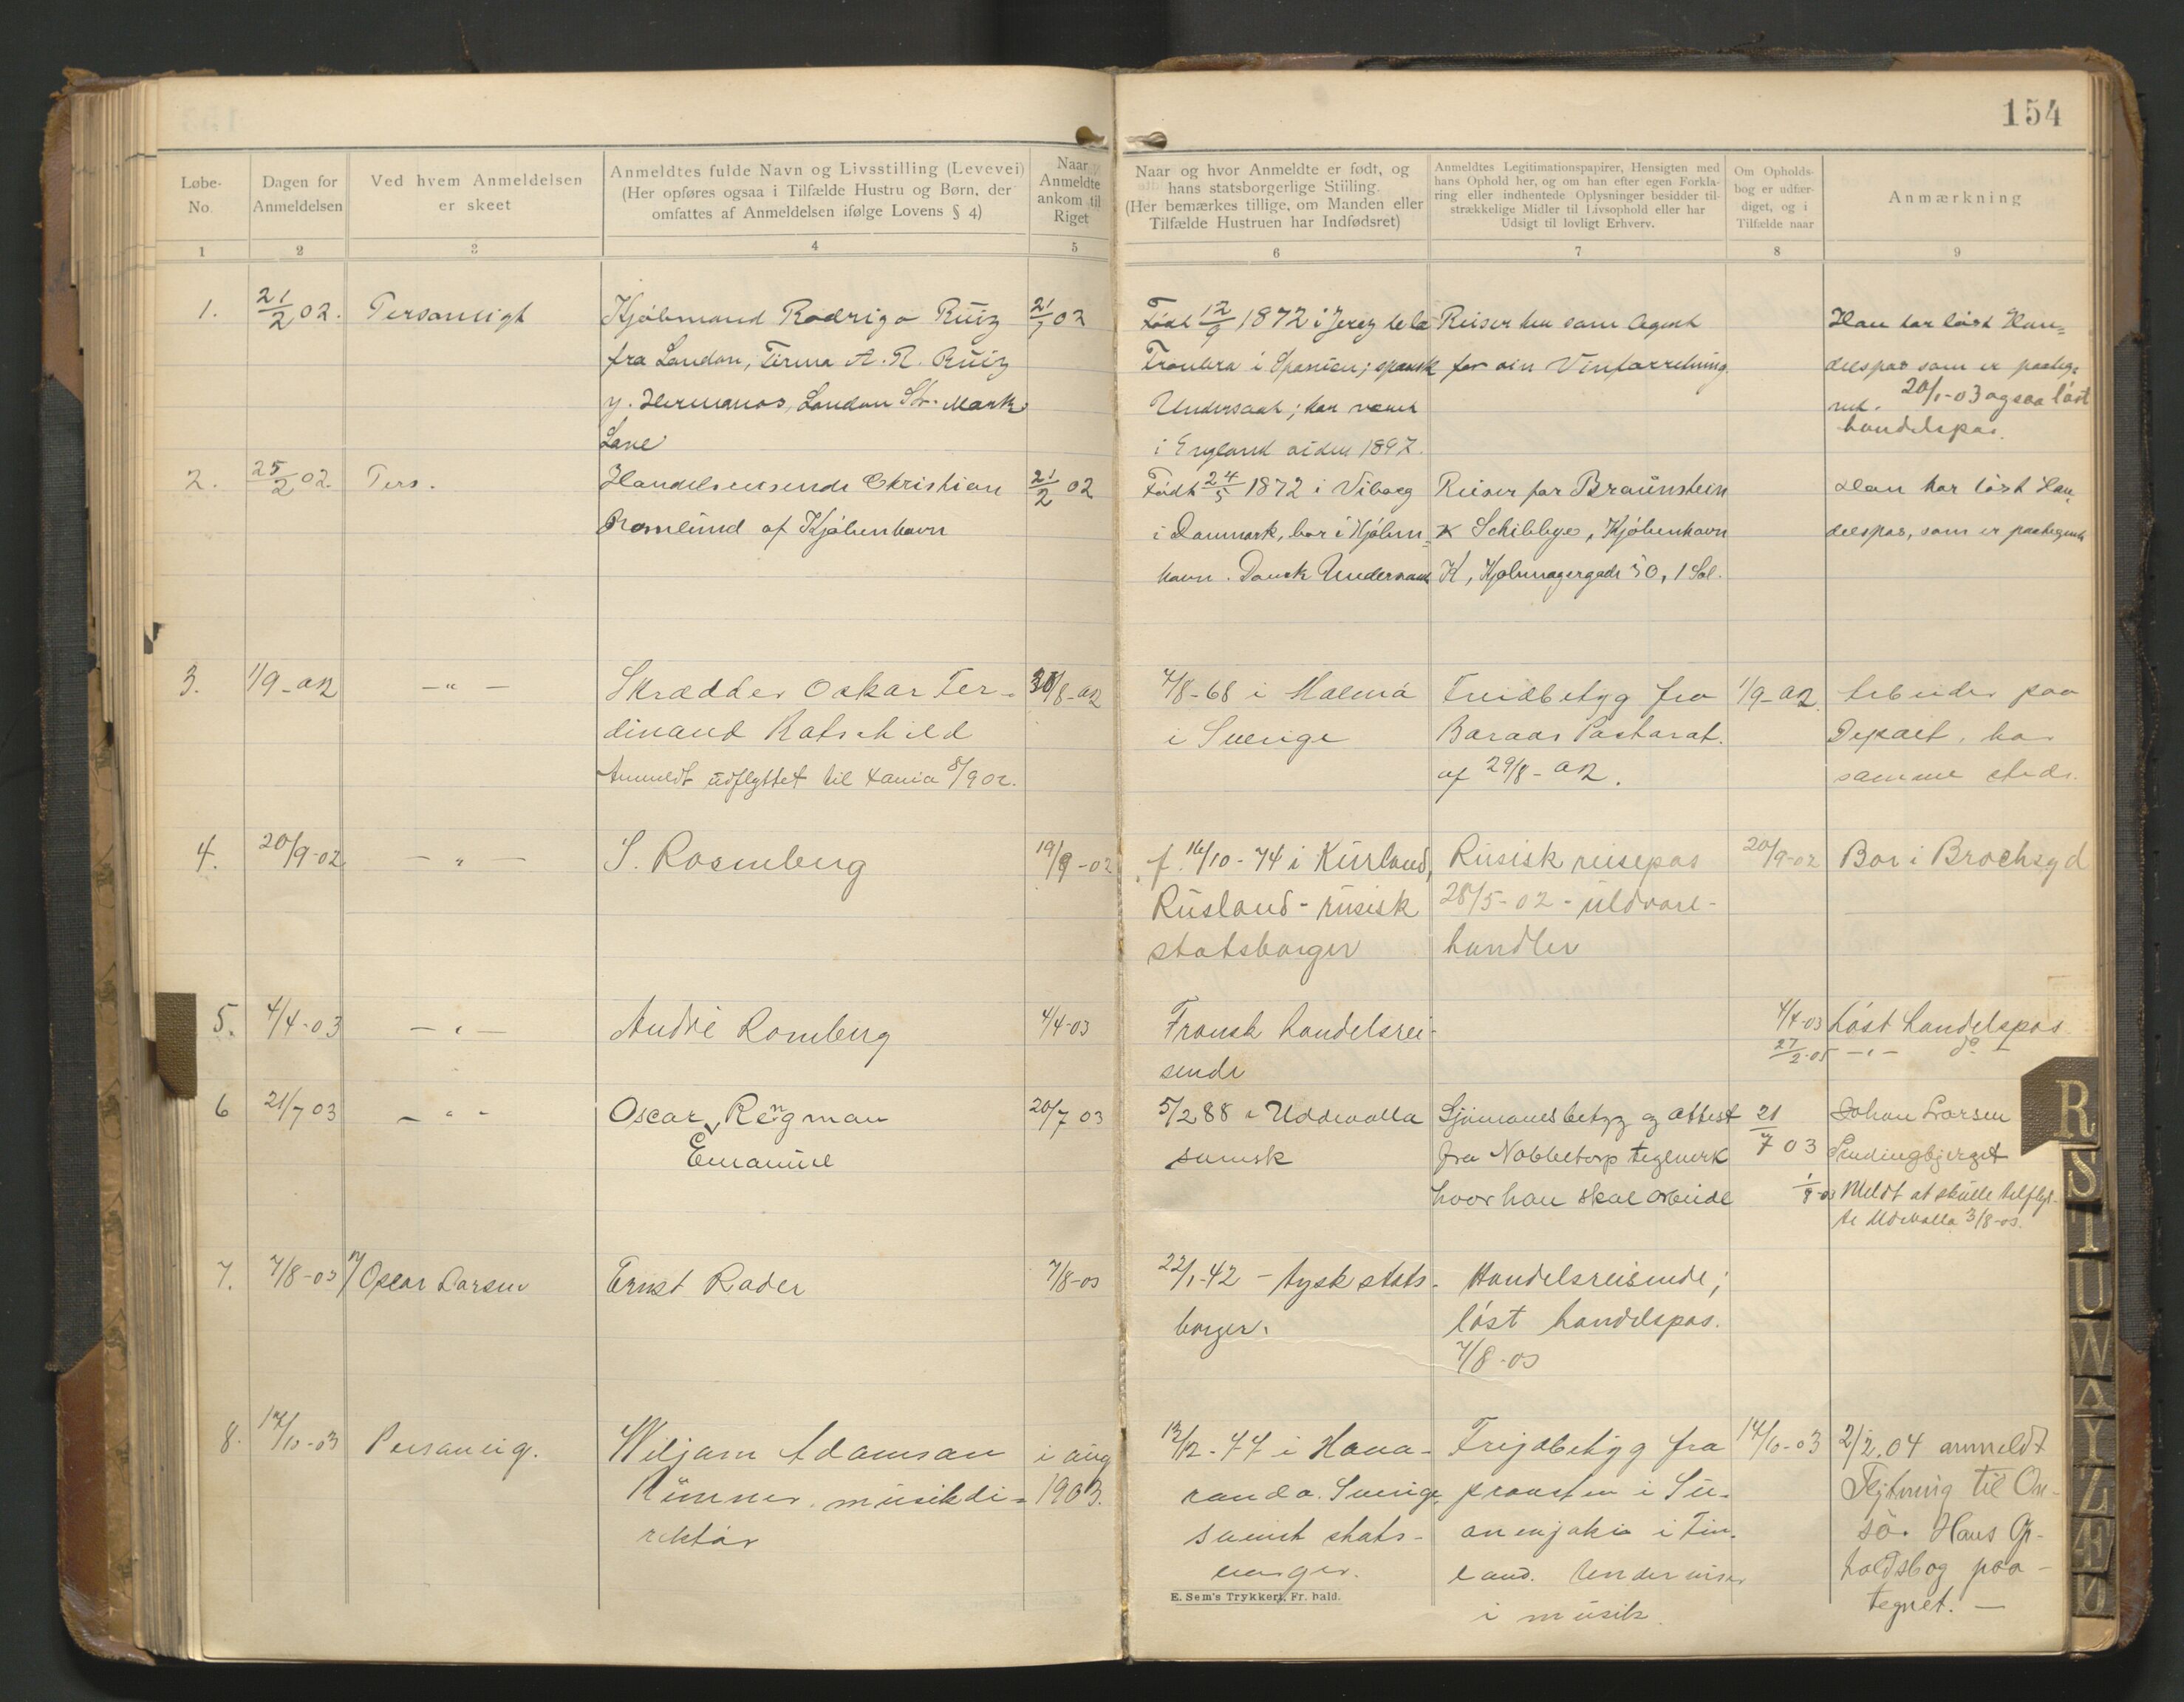 154
Løbe-
No.
Dagen for
Anmeldelsen
Ved hvem Anmeldelsen
er skeet
Anmeldtes fulde Navn og Livsstilling (Levevei)
(Her opføres ogsaa i Tilfælde Hustru og Børn, der
omfattes af Anmeldelsen ifølge Lovens § 4)
Naar
Anmeldte
ankom til
Riget
Naar og hvor Anmeldte er født, og
hans statsborgerlige Stiiling.
(Her bemærkes tillige, om Manden eller
Tilfælde Hustruen har Indfødsret)
Anmeldtes Legitimationspapirer, Hensigten med
hans Ophold her, og om han efter egen Forkla-
ring eller indhentede Oplysninger besidder til-
strækkelige Midler til Livsophold eller har
Udsigt til lovligt Erhverv.
Om Opholds-
bog er udfær-
diget, og i
Tilfælde naar
Anmærkning
1 2 3 4 5 6 7 8 9
1.
21/2 02.
Personligt
Kjøbmand Rodrigo Ruiz
fra London, Firma A. R. Ruiz
y. Hermanos, London Str. Mark
Lane
21/1 02
Født 12/9 1872 i Jerez de la
Frontera i Spanien; spansk
Undersaat; har været
i England siden 1897.
Reiser her som Agent
for sin Vinforretning.
Han har løst Han=
delspas som er paateg=
net. 20/1-03 ogsaa løst
handelspas.
2.
25/2 02.
Pers.
Handelsreisende Christian
Romlund af Kjøbenhavn
21/2 02
Født 24/5 1872 i Viborg
i Danmark, bor i Kjøben=
havn. Dansk Undersaat
Reiser for Braunstein
& Schibbye, Kjøbenhavn
K, Kjøbmagergade 50, 1 Sal.
Han har løst Han=
delspas, som er paategnet
3.
1/9-02
- " -
Skrædder Oskar Fer-
dinand Rotschild
Anmeldt udflyttet til Xania 8/9 02.
30/8-02
7/8-68 i Malmø
i Sverige
Fredbetyg fra
Boraas Pastorat.
af 29/8-02.
1/9-02
Arbeider paa
Depast, bor
samme steds.
4.
20/9-02
- " -
S. Rosenberg
19/9-02
f. 16/10-74 i Kurland,
Rusland - rusisk
statsborger
Rusisk reisepas
28/5-02 - uldvare-
handler
20/9-02
Bor i Brochsgd
5.
4/4-03
- " -
André Romberg
4/4-03
Fransk handelsrei-
sende
4/4-03
27/2-05
Løst handelspas
- " - do -
6
21/7 03
- " -
Oscar Rengman
Emanuel
20/7 03
5/2 88 i Uddevalla
svensk
Sjömansbetyg og attest
fra Nabbetorp teglverk
hvor han skal arbeide
21/7 03
Johan Larsen
Smedingbjerget
Meldt at skulle tilflyt-
te Uddevalla 3/8-03.
7.
7/8-03
Oscar Larsen
Ernst Rader
7/8-03
22/1-42 - tysk stats-
borger.
Handelsreisende;
løst handelspas.
7/8-03
8.
14/10-03
Personlig.
Wiljam Adamson
Runner, musikdi=
rektør
i aug
1903.
13/12-77 i Hapa-
randa. Sverige,
svensk stats-
borger.
Frejdbetyg fra
prousten i Su-
onenjoki i Fin-
land. Underviser
i musik.
14/10-03
2/2.04 anmeldt
Flytning til On-
sø. Hans Op-
holdsbog paa-
tegnet. -
E. Sem's Trykkeri, Fr. hald.
R
S
T
U
W
A
Y
Z
Æ
Ø